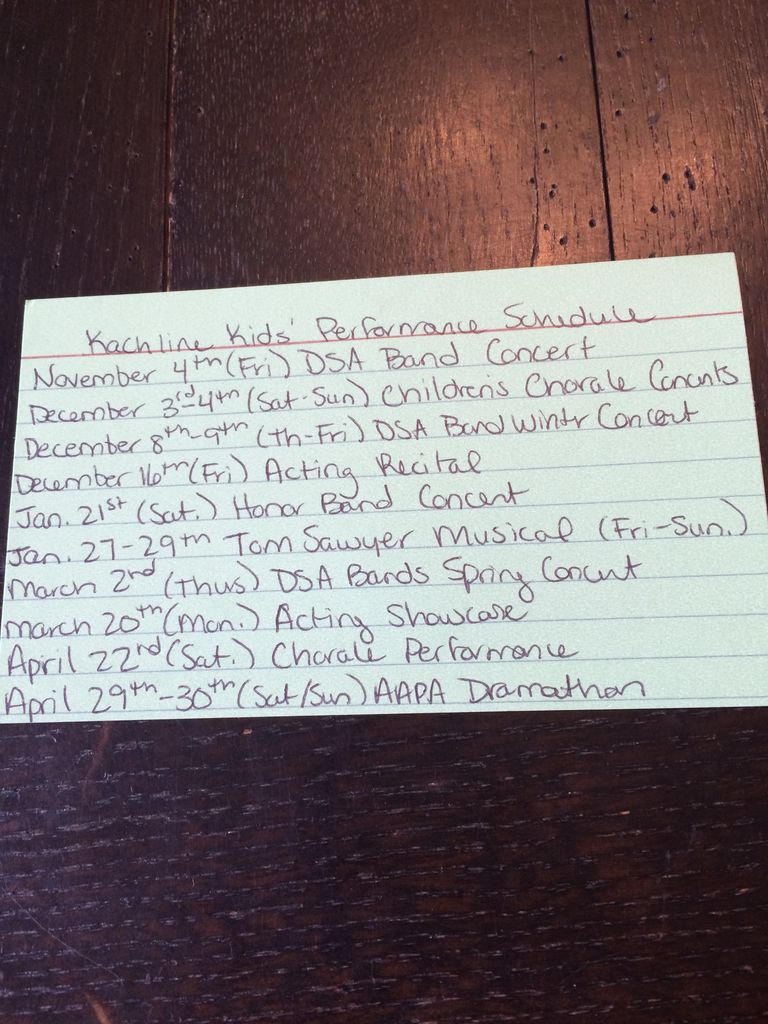 Kachline Kids' Performance Schedule
November 4th (Fri) DSA Band Concert
December 3rd-4th (Sat-Sun) Children's Chorale Concerts
December 8th-9th (Th-Fri) DSA Band Winter Concert
December 16th (Fri) Acting Recital
Jan. 21st (Sat.) Honor Band Concert
Jan. 27-29th Tom Sawyer Musical (Fri-Sun.)
March 2nd (Thus) DSA Bands Spring Concert
March 20th (Mon.) Acting Showcase
April 22nd (Sat.) Chorale Performance
April 29th-30th (Sat/Sun) AAPA Dramathon